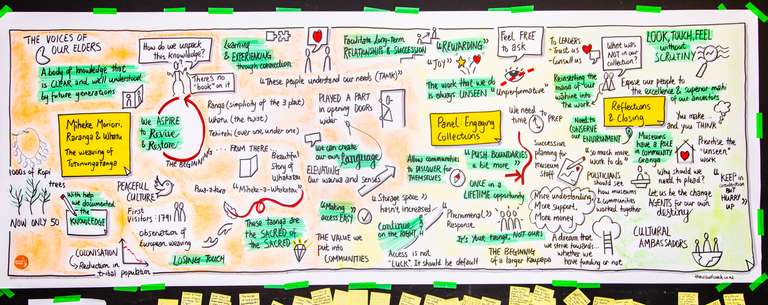 THE VOICES OF
OUR ELDERS
A body of knowledge that
is CLEAR and well understood
by future generations
How do we unpack
this knowledge?
There's no
"book" on it
Miheke Moriori,
Raranga & Whatu
The weaving of
We ASPIRE
to Revive
& Restore
THE BEGINNING
... FROM THERE...
1000s of Kopi
trees
NOW ONLY 50
With help
we documented
the
KNOWLEDGE
COLONISATION
Reduction in
tribal population
PEACEFUL
CULTURE
First
Visitors 1791
Observation of
European weaving
LOSING TOUCH
Learning
& EXPERIENCING
through connection
"These people understand our needs (TANK)"
Ranga (simplicity of the 3 plait)
Whatu (the twist)
(over one, under one)
Beautiful
Story of
Whakatau
"Miheke-a-Whakatau"
These taonga are
the SACRED OF
the SACRED
PLAYED A PART
in opening DOORS
wider
We can create
our own Language
ELEVATING
Our wairua and senses
"Making
access EASY"
THE VALUE we
put into
COMMUNITIES
Facilitate Long-Term
RELATIONSHIPS & SUCCESSION
"REWARDING"
"JOY"
The work that we do
is always UNSEEN
Feel FREE
to ask
Unperformative
Panel Engaging
Collections
We need
time to
PREP
Allow communities
to DISCOVER for
THEMSELVES
"PUSH BOUNDARIES
a bit more"
ONCE in a
LIFETIME opportunity
"Storage space
hasn't increased"
Continue
on the RIGHT
Phenomenal
Response
It's Your taonga, NOT OURS
Access is not
"LUCK". It should be default
THE BEGINNING
of a larger Kaupapa
To LEADERS
- Trust us
- Consult us
What was
NOT in our
collection?
LOOK, TOUCH, FEEL
without
SCRUTINY
Reinserting the
mana of our
into
The work
Expose our people to
the excellence & superior mahi
of our ancestors
Reflections
& Closing
You make...
and you THINK
Need to
CONSERVE
ENVIRONMENT
Museums
have a ROLE
in COMMUNITY
Prioritise the
"unseen"
work
Succession
planning for
museum
staff
"so much more
work to do"
POLITICIANS
should see
how museums
& communities
worked together
Why should
we need to plead?
Let us be the change
AGENTS for our own
destiny
"KEEP in
HURRY
UP"
More understanding
More support,
More money
A dream that
we strive towards...
whether we
have funding or not
CULTURAL
AMBASSADORS